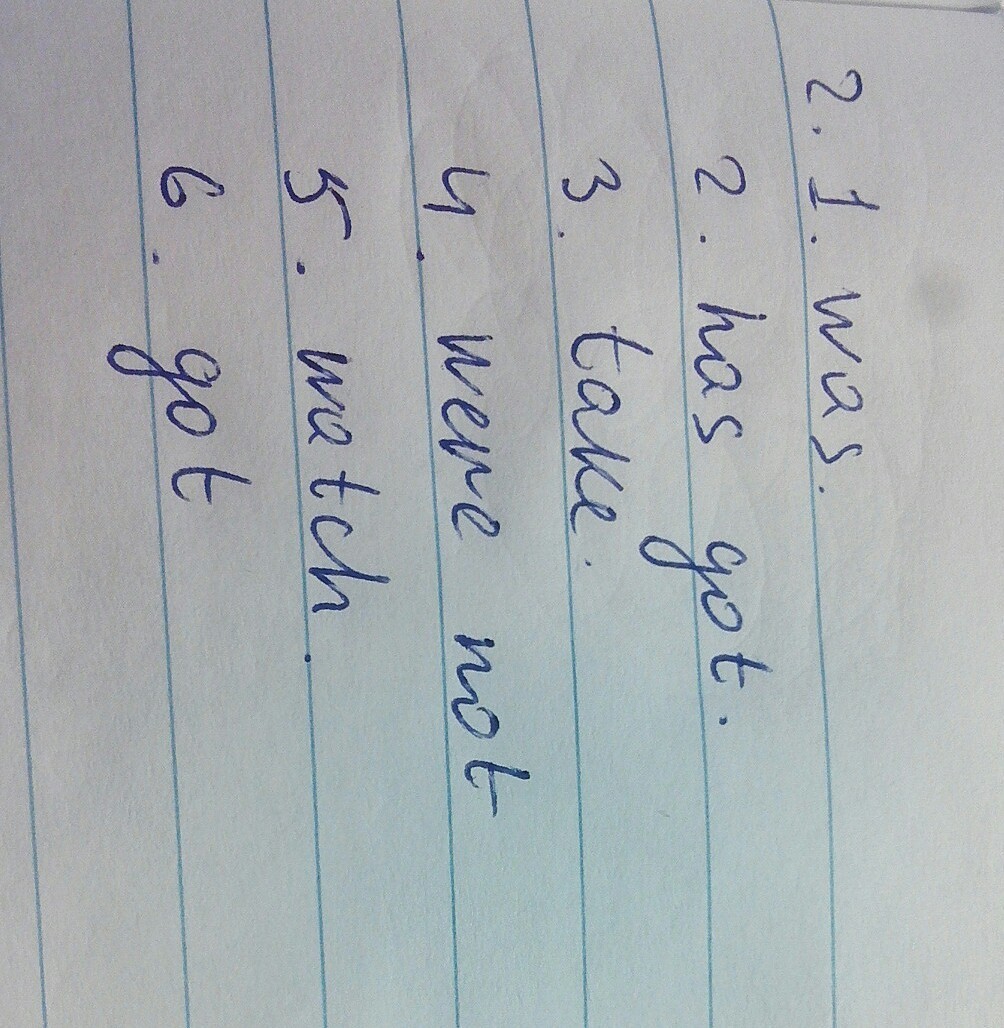 2. 1. was.
2. has got.
3. take.
4. were not
5. watch.
6. got